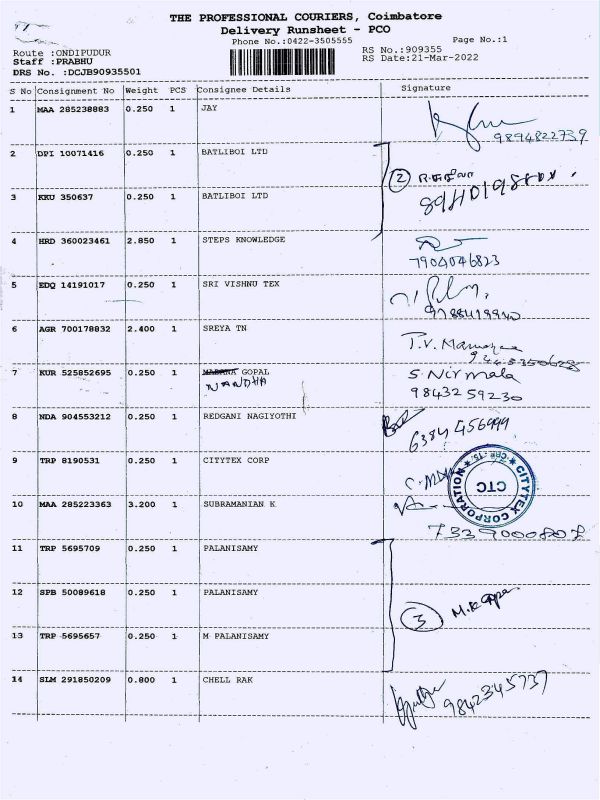 THE PROFESSIONAL COURIERS, Coimbatore
Delivery Runsheet - PCO
Phone No.:0422-3505555
Page No.:1
Route :ONDIPUDUR
Staff :PRABHU
DRS No. :DCJB90935501
RS No.:909355
RS Date:21-Mar-2022
S No Consignment No Weight PCS Consignee Details Signature
1 MAA 285238883 0.250 1 JAY
9894822739
2 DPI 10071416 0.250 1 BATLIBOI LTD
2
3 KKU 350637 0.250 1 BATLIBOI LTD
4 HRD 360023461 2.850 1 STEPS KNOWLEDGE
7904046823
5 EDQ 14191017 0.250 1 SRI VISHNU TEX
9788419940
6 AGR 700178832 2.400 1 SREYA TN
T.V.
7 KUR 525852695 0.250 1 GOPAL
NANDHA
S. Nirmala
9843259230
8 NDA 904553212 0.250 1 REDGANI NAGIYOTHI
6384456999
9 TRP 8190531 0.250 1 CITYTEX CORP
CITYTEX CORPORATION
CTC
CBE-15.
10 MAA 285223363 3.200 1 SUBRAMANIAN K
7339000802
11 TRP 5695709 0.250 1 PALANISAMY
12 SPB 50089618 0.250 1 PALANISAMY
3
13 TRP 5695657 0.250 1 M PALANISAMY
14 SLM 291850209 0.800 1 CHELL RAK
9842345737